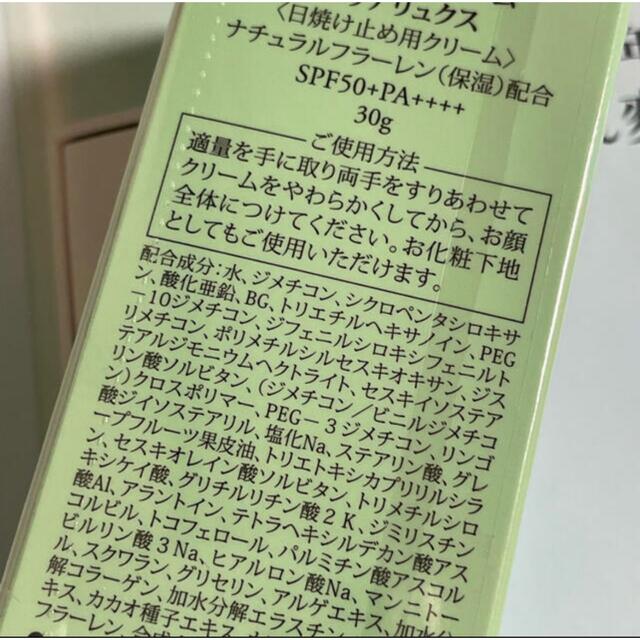 リュクス
〈日焼け止め用クリーム〉
ナチュラルフラーレン(保湿)配合
SPF50+PA++++
30g
ご使用方法
適量を手に取り両手をすりあわせて
クリームをやわらかくしてから、お顔
全体につけてください。お化粧下地
としてもご使用いただけます。
配合成分:水、ジメチコン、シクロペンタシロキサ
ン、酸化亜鉛、BG、トリエチルヘキサノイン、PEG
ー10ジメチコン、ジフェニルシロキシフェニルト
リメチコン、ポリメチルシルセスキオキサン、ジス
テアルジモニウムヘクトライト、セスキイソステア
リン酸ソルビタン、(ジメチコン/ビニルジメチコ
ン)クロスポリマー、PEGー3ジメチコン、リンゴ
酸ジイソステアリル、塩化Na、ステアリン酸、グレ
ープフルーツ果皮油、トリエトキシカプリリルシラ
ン、セスキオレイン酸ソルビタン、トリメチルシロ
キシケイ酸、グリチルリチン酸2K、ジミリスチン
酸Al、アラントイン、テトラヘキシルデカン酸アス
コルビル、トコフェロール、パルミチン酸アスコル
ビルリン酸3Na、ヒアルロン酸Na、マンニトー
ル、スクワラン、グリセリン、アルゲエキス、加水分
解コラーゲン、加水分解エラスチン、
フラーレン、カカオ種子エキス、